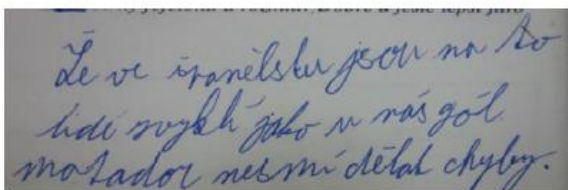 Že ve španělsku jsou na to
lidi zvyklí jako u nás gól
matador nesmí dělat chyby.